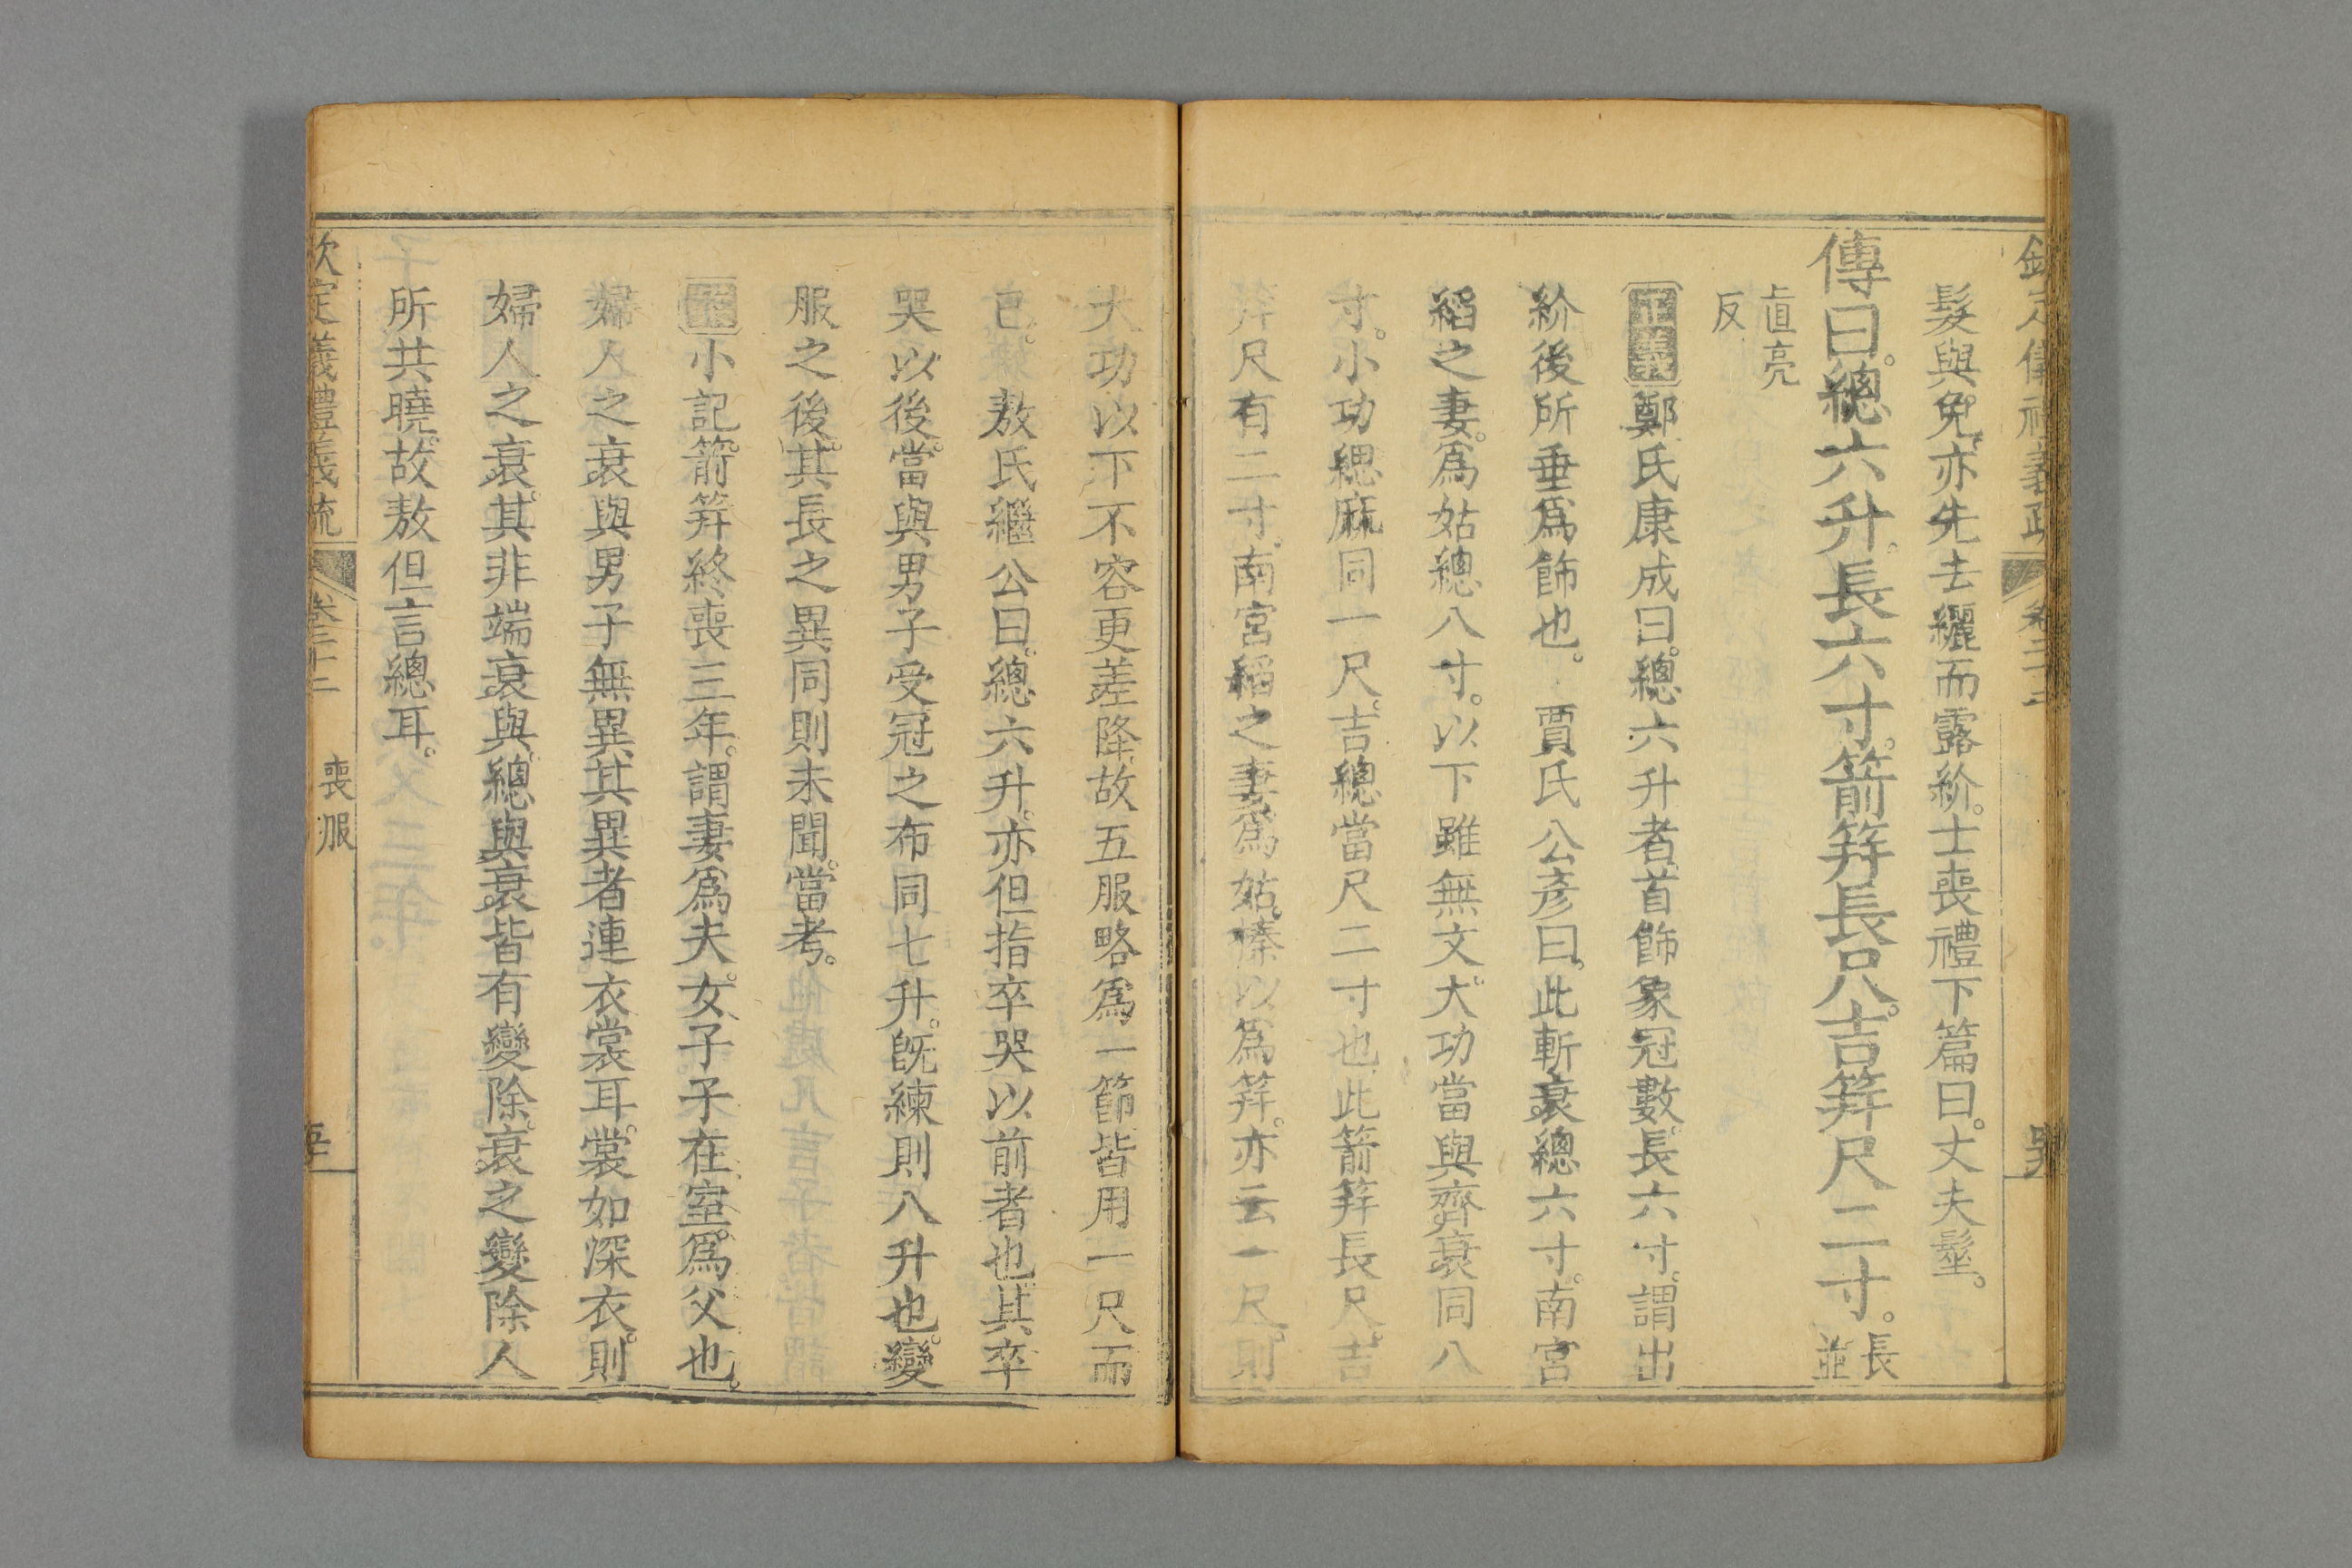 欽定儀禮義疏 卷二十二
髮與免亦先去纚而露紒。士喪禮下篇曰。丈夫髽。
傳曰。總六升。長六寸。箭筓長尺。吉筓尺二寸。長並
直亮反
正義鄭氏康成曰。總六升者。首飾象冠數。長六寸。謂出
紒後所垂爲飾也。 賈氏公彥曰。此斬衰總六寸。南宮
縚之妻。爲姑總八寸。以下雖無文。大功當與齊衰同八
寸。小功緦麻同一尺。吉總當尺二寸也。此箭筓長尺。吉
筓尺有二寸。南宮縚之妻爲姑。榛以爲筓。亦云一尺。則
大功以下不容更差降。故五服略爲一節。皆用一尺而
已。 敖氏繼公曰。總六升。亦但指卒哭以前者也。其卒
哭以後。當與男子受冠之布同七升。既練則八升也。變
服之後。其長之異同則未聞。當考。
小記。箭筓終喪三年。謂妻爲夫。女子子在室。爲父也。
婦人之衰與男子無異。其異者連衣裳耳。裳如深衣。則
婦人之衰。其非端衰與。總與衰皆有變除。衰之變除人
所共曉。故敖但言總耳。
欽定儀禮義疏 卷二十二 喪服